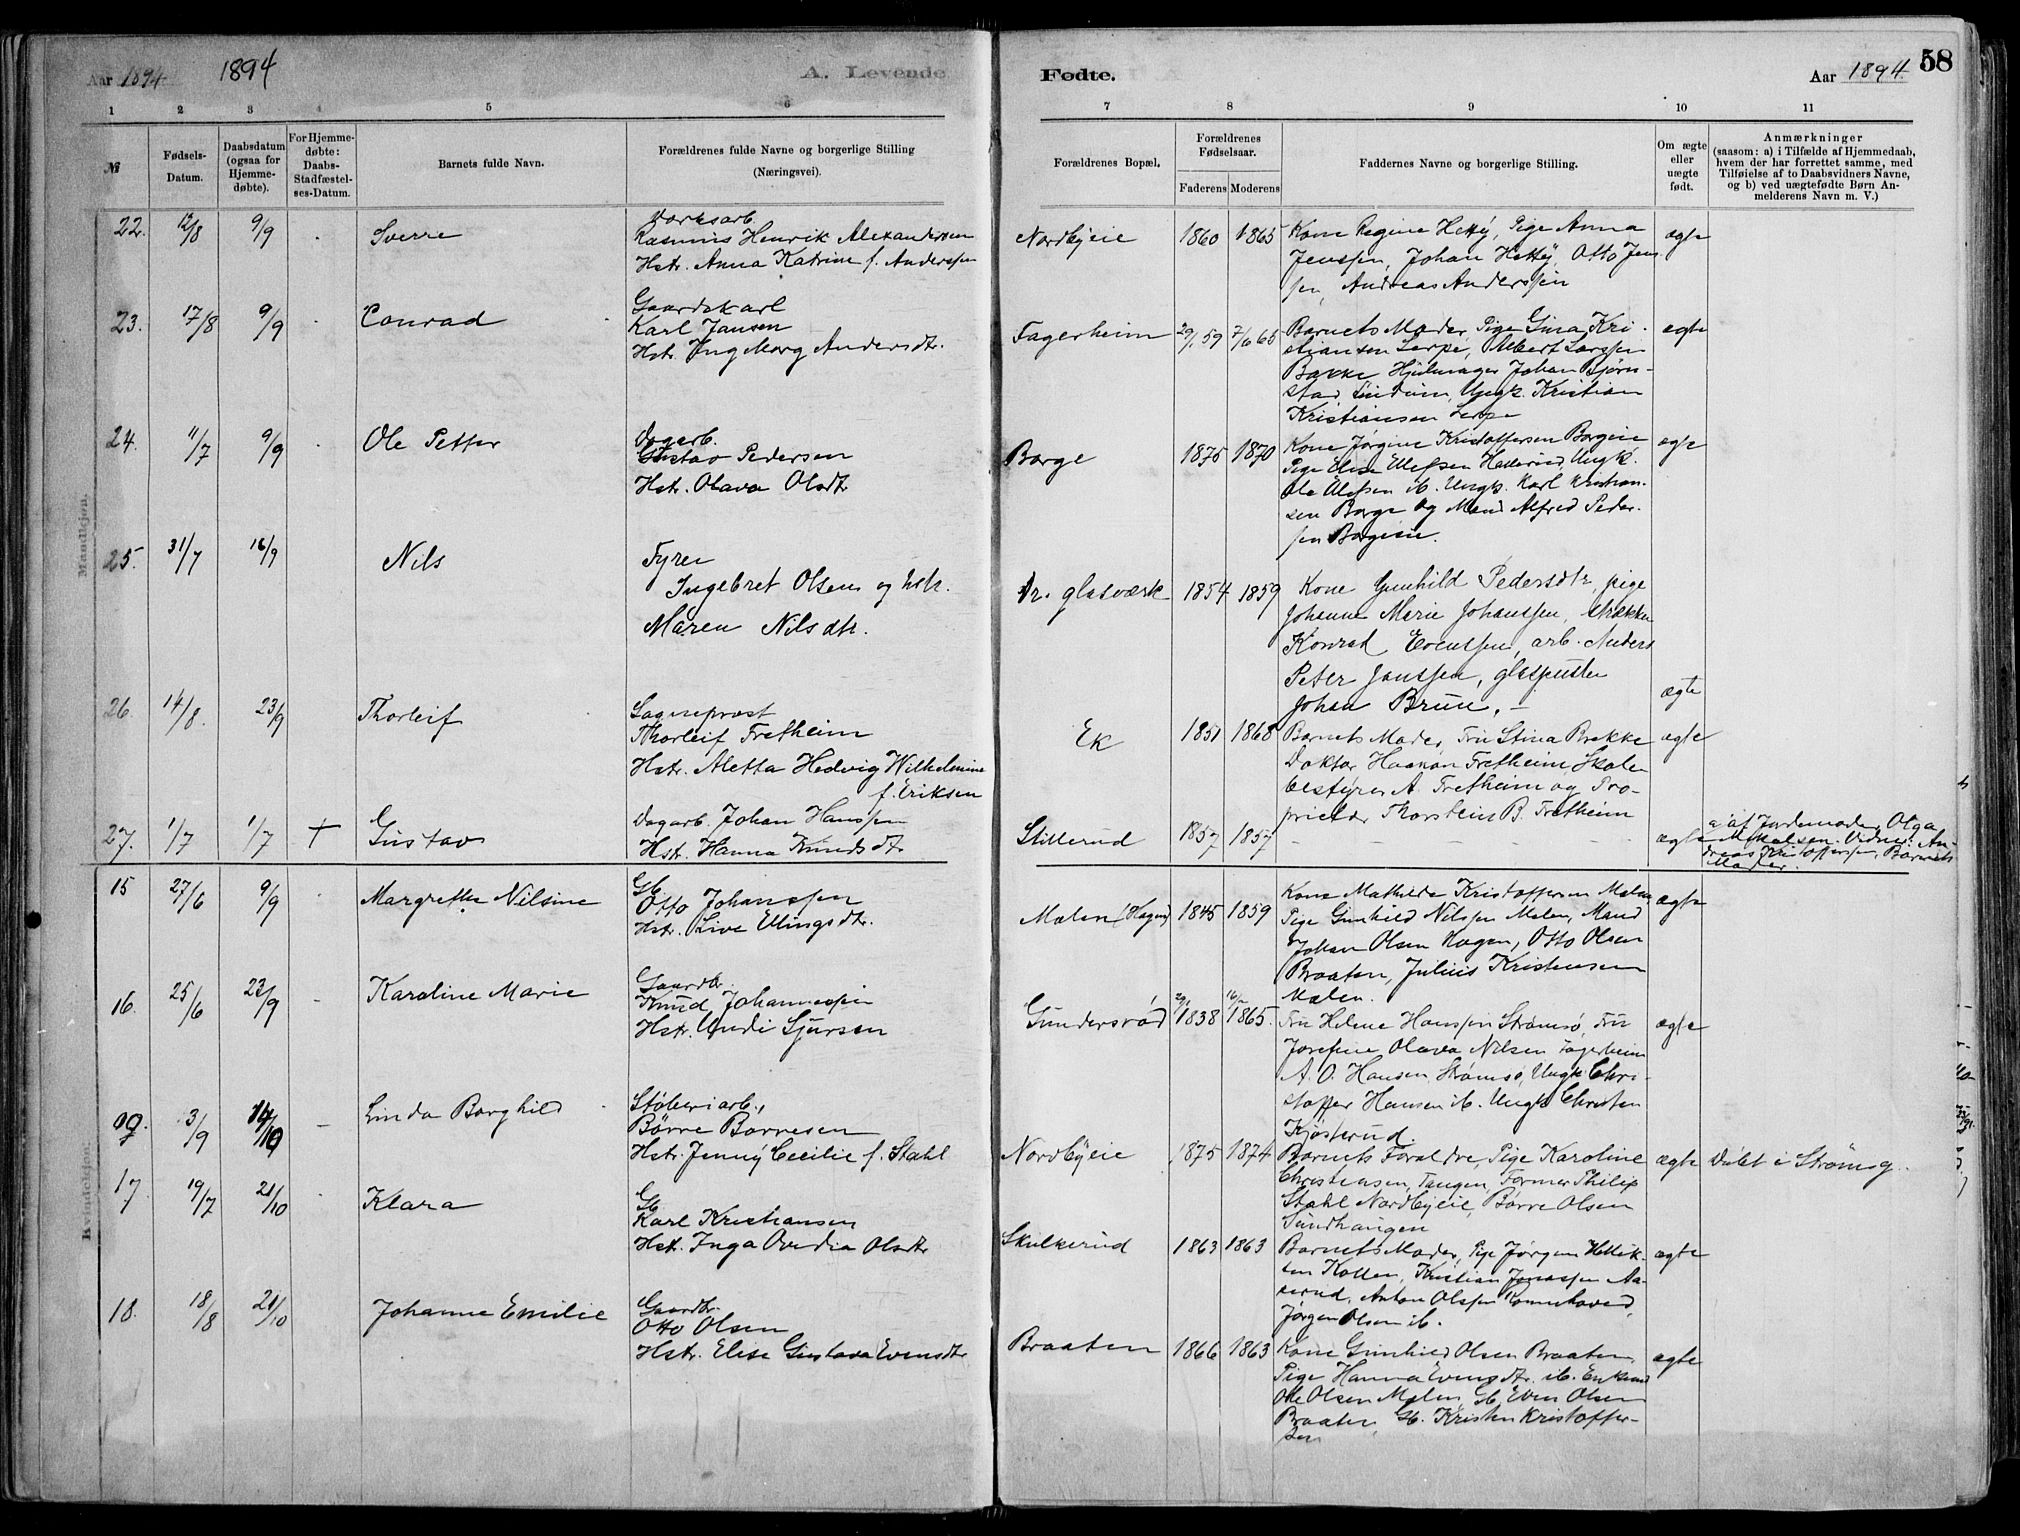 Aar 1894 1894 A. Levende
Fødte. Aar 1894. 58
1 2 3 4 5 6 7 8 9 10 11
№
Fødsels-
Datum.
Daabsdatum
(ogsaa for
Hjemme-
døbte).
For Hjemme-
døbte:
Daabs-
Stadfæstel-
ses-Datum.
Barnets fulde Navn.
Forældrenes fulde Navne og borgerlige Stilling
(Næringsvei).
Forældrenes Bopæl.
Forældrenes
Fødselsaar.
Faderens Moderens
Faddernes Navne og borgerlige Stilling.
Om ægte
eller
uægte
født.
Anmærkninger
(saasom: a) i Tilfælde af Hjemmedaab,
hvem der har forrettet samme, med
Tilføielse af to Daabsvidners Navne,
og b) ved uægtefødte Børn An-
melderens Navn m. V.)
Mandkjøn.
22. 12/8 9/9 Sverre
Rasmus Henrik Alexandersen
Hstr. Anna Katrine f. Anderssen
Nordbyeie 1860 1865
Kone Regine Hettý, Pige Anna
Jenssen, Johan Hettý, Otto Jens
sen, Andreas Anderssen
ægte
23. 17/8 9/9 Conrad
Gaardskarl
Karl Jansen
Hstr. Ingeborg Andersdtr.
Fagerheim 29/1 59 7/6 65
Barnets Moder, Pige Gina Kri-
stiansen Lerpe, Albert Larssen
Bakke Hjulmager Johan Bjørn-
stad, Ungk. Kristian
Kristiansen Lerpe
ægte
24. 11/7 9/9 Ole Petter
Dagarb.
Gustav Pedersen
Hstr. Olava Olsdtr
Borge 1875 1870
Kone Jørgine Kristoffersen Borgeie
Pige Elise Ellefsen Ungk.
Ole ib. Ungk. Karl Kristian-
sen Borge og Mand Alfred Peder-
sen Borgeie.
ægte
25. 31/7 16/9 Nils
Fyrer
Ingebret Olsen og hstr.
Maren Nilsdtr.
Dr. glasværk 1854 1859
Kone Gunhild Pedersdtr, pige
Johanne Marie Johanssen, strækker
Konrad Evenssen, arb. Anders
Peter Janssen, glaspuster
Johan Brun. -
ægte
26. 14/8. 23/9 Thorleif
Sogneprest
Thorleif Fretheim
Hstr. Aletta Hedvig Wilhelmine
f. Eriksen
Ek 1851 1868
Barnets Moder, Fru Stina Brekke
Doktor Haakon Fretheim, Skole
bestyrer A. Fretheim og Pro-
prietær Thorstein B. Fretheim
ægte
27. 1/7 1/7 + Gustav
Dagarb. Johan Hanssen
Hstr. Hanna Knudsdtr
Stillerud 1857 1857
ægte
a) af Jordemoder Olga
Vidner: An-
dreas Kristoffersen, Barnets
Moder.
Kvindekjøn.
15 27/6 9/9 Margrethe Nilsine
Gb.
Otto Johanssen
Hstr. Live Ellingsdtr.
Mælen (Hagen) 1845 1859
Kone Mathilde Kristoffersen Mælen
Pige Gunhild Nilssen Mælen, Mand
Johan Olsen Hagen, Otto Olsen
Braaten, Julius Kristensen
Mælen.
ægte
16. 25/6 23/9 Karoline Marie
Gaardbr.
Knud Johannessen
Hstr. Undi Sjursen
Gundersrød 29/1 1838 16/2 1865.
Fru Helene Hanssen Strømsø, Fru
Josefine Olava Nilsen Fagerheim
A. O. Hansen, Strømsø, Ungk. Chri-
stoffer Hansen ib. Ungk. Christen
Kjøsterud.
ægte
09. 3/9 14/10 Linda Borghild
Støberiarb.,
Børre Børresen
Hstr. Jenný Cecilie f. Stahl
Nordbyeie 1875 1874
Barnets Forældre, Pige Karoline
Christensen, Tangen, Former Philip
Stahl Nordbyeie, Børre Olsen
Sundhaugen
ægte
Døbt i Strømsø.
17. 19/7 21/10 Klara
Gb
Karl Kristiansen
Hstr. Inga Ovidia Olsdtr
Skulkerud 1863 1863
Barnets Moder, Pige Jørgen Hellik-
sen Kollen, Kristian Jonassen Aa-
serud, Anton Olssen
Jørgen Olsen ib.
ægte
18. 18/8 21/10 Johanne Emilie
Gaardbr.
Otto Olsen
Hstr. Elise Gustava Evensdtr
Braaten 1866 1863
Kone Gunhild Olsen Braaten,
Pige Hanna Evensdtr. ib. Enkemd
Ole Olsen Mælen, Gb. Even Olsen
Braaten, Gb. Kristen Kristoffer-
sen
ægte